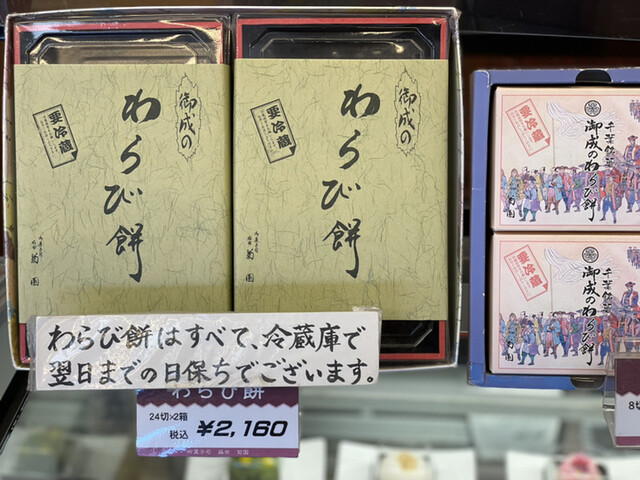 御成の
わらび餅
要冷蔵
菊園
御成の
わらび餅
要冷蔵
菊園
千葉銘菓
御成のわらび餅
要冷蔵
千葉銘菓
御成のわらび餅
要冷蔵
わらび餅はすべて、冷蔵庫で
翌日までの日保ちでございます。
わらび餅
24切×2箱
税込 ¥2,160
8切